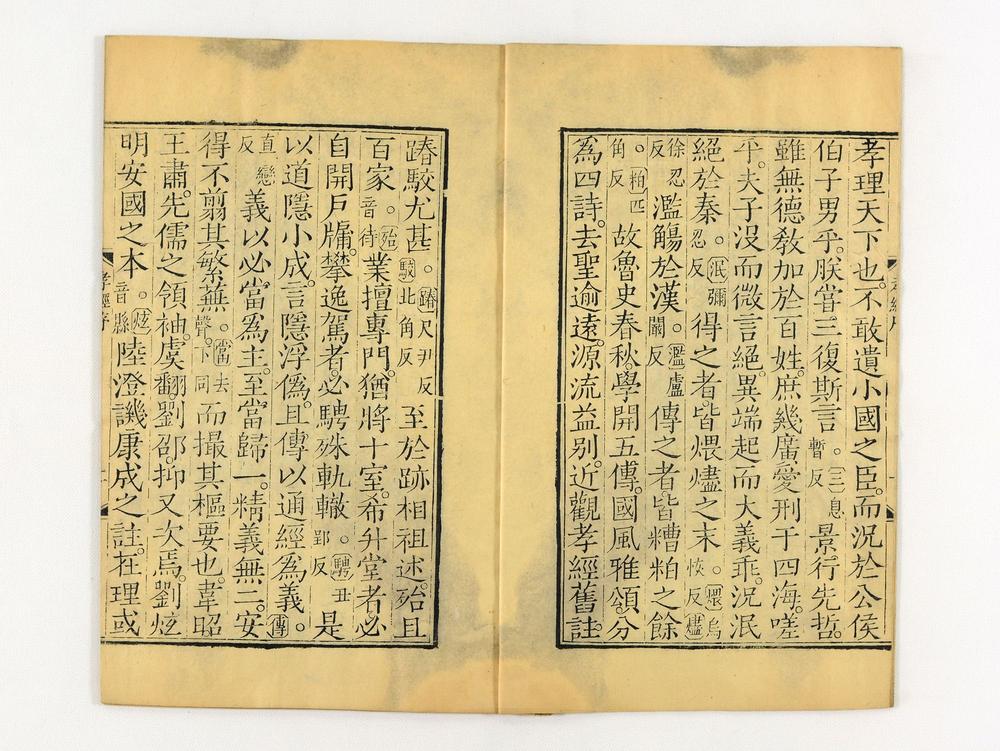 孝理天下也。不敢遺小國之臣。而況於公侯
伯子男乎。朕嘗三復斯言。三息暫反景行先哲。
雖無德教加於百姓。庶幾廣愛刑于四海。嗟
乎。夫子沒而微言絕。異端起而大義乖。況泯
絕於秦。泯彌忍反得之者。皆煨燼之末。煨烏恢反燼
徐忍反濫觴於漢。濫盧闞反傳之者皆糟粕之餘
。粕匹角反故魯史春秋。學開五傳。國風雅頌。分
爲四詩。去聖逾遠。源流益别。近觀孝經舊註。
踳駮尤甚。踳尺尹反駮北角反至於跡相祖述。殆且
百家。殆音待業擅專門。猶將十室。希升堂者。必
自開戶牖。攀逸駕者。必騁殊軌轍。騁丑郢反是
以道隱小成。言隱浮僞。且傳以通經爲義。傳
直戀反義以必當爲主。至當歸一。精義無二。安
得不翦其繁蕪。當去聲下同而撮其樞要也。韋昭
王肅。先儒之領袖。虞翻。劉邵。抑又次焉。劉炫
明安國之本。炫音縣陸澄譏康成之註。在理或
孝經序